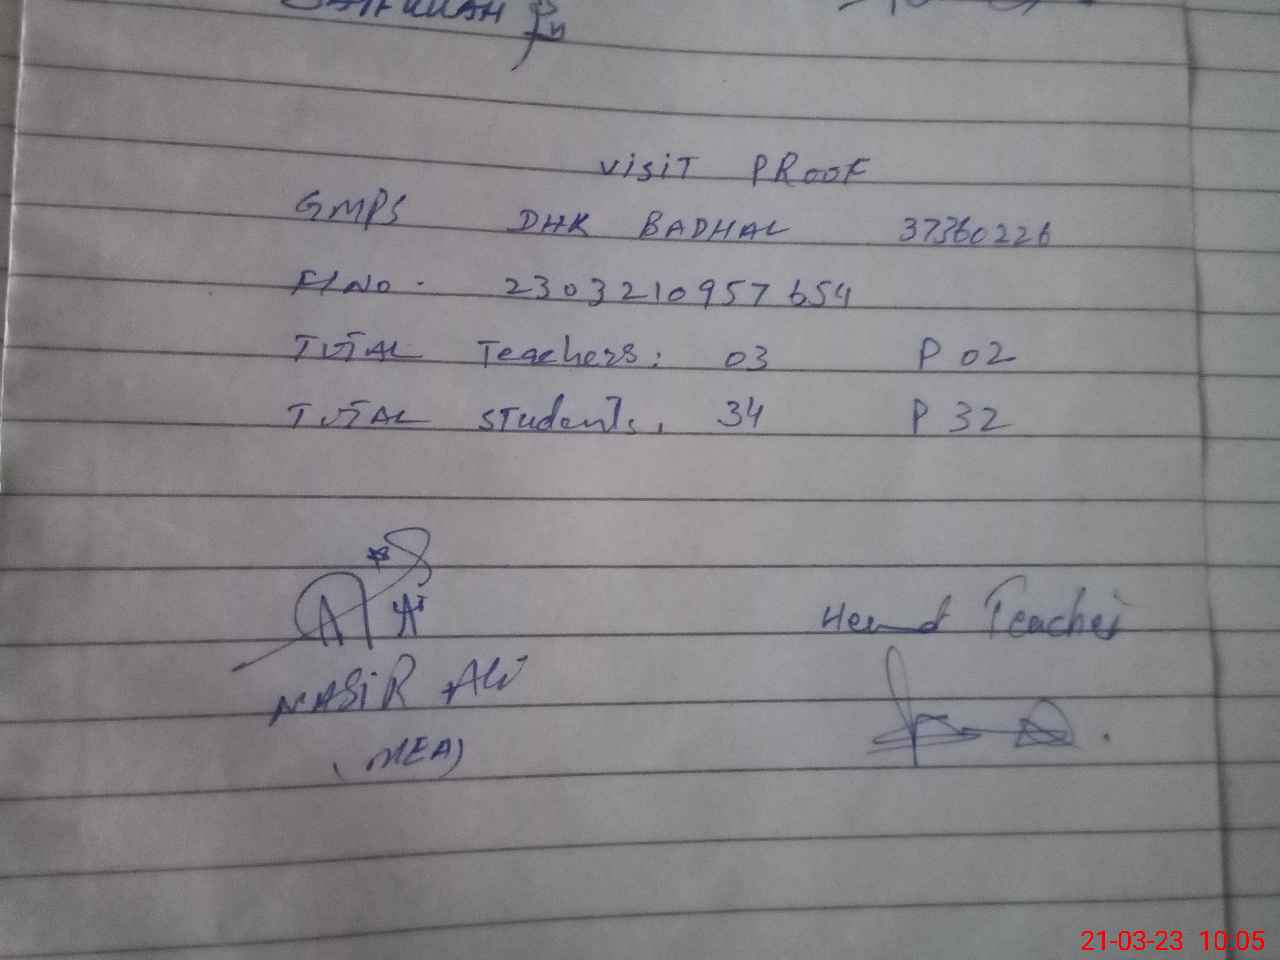 VISIT PROOF
GMPS DHK BADHAL 37360226
F/No. 2303210957654
TOTAL Teachers: 03 P 02
TOTAL Students. 34 P 32
Head Teacher
NASIR Ali
(MEA)
21-03-23 10:05